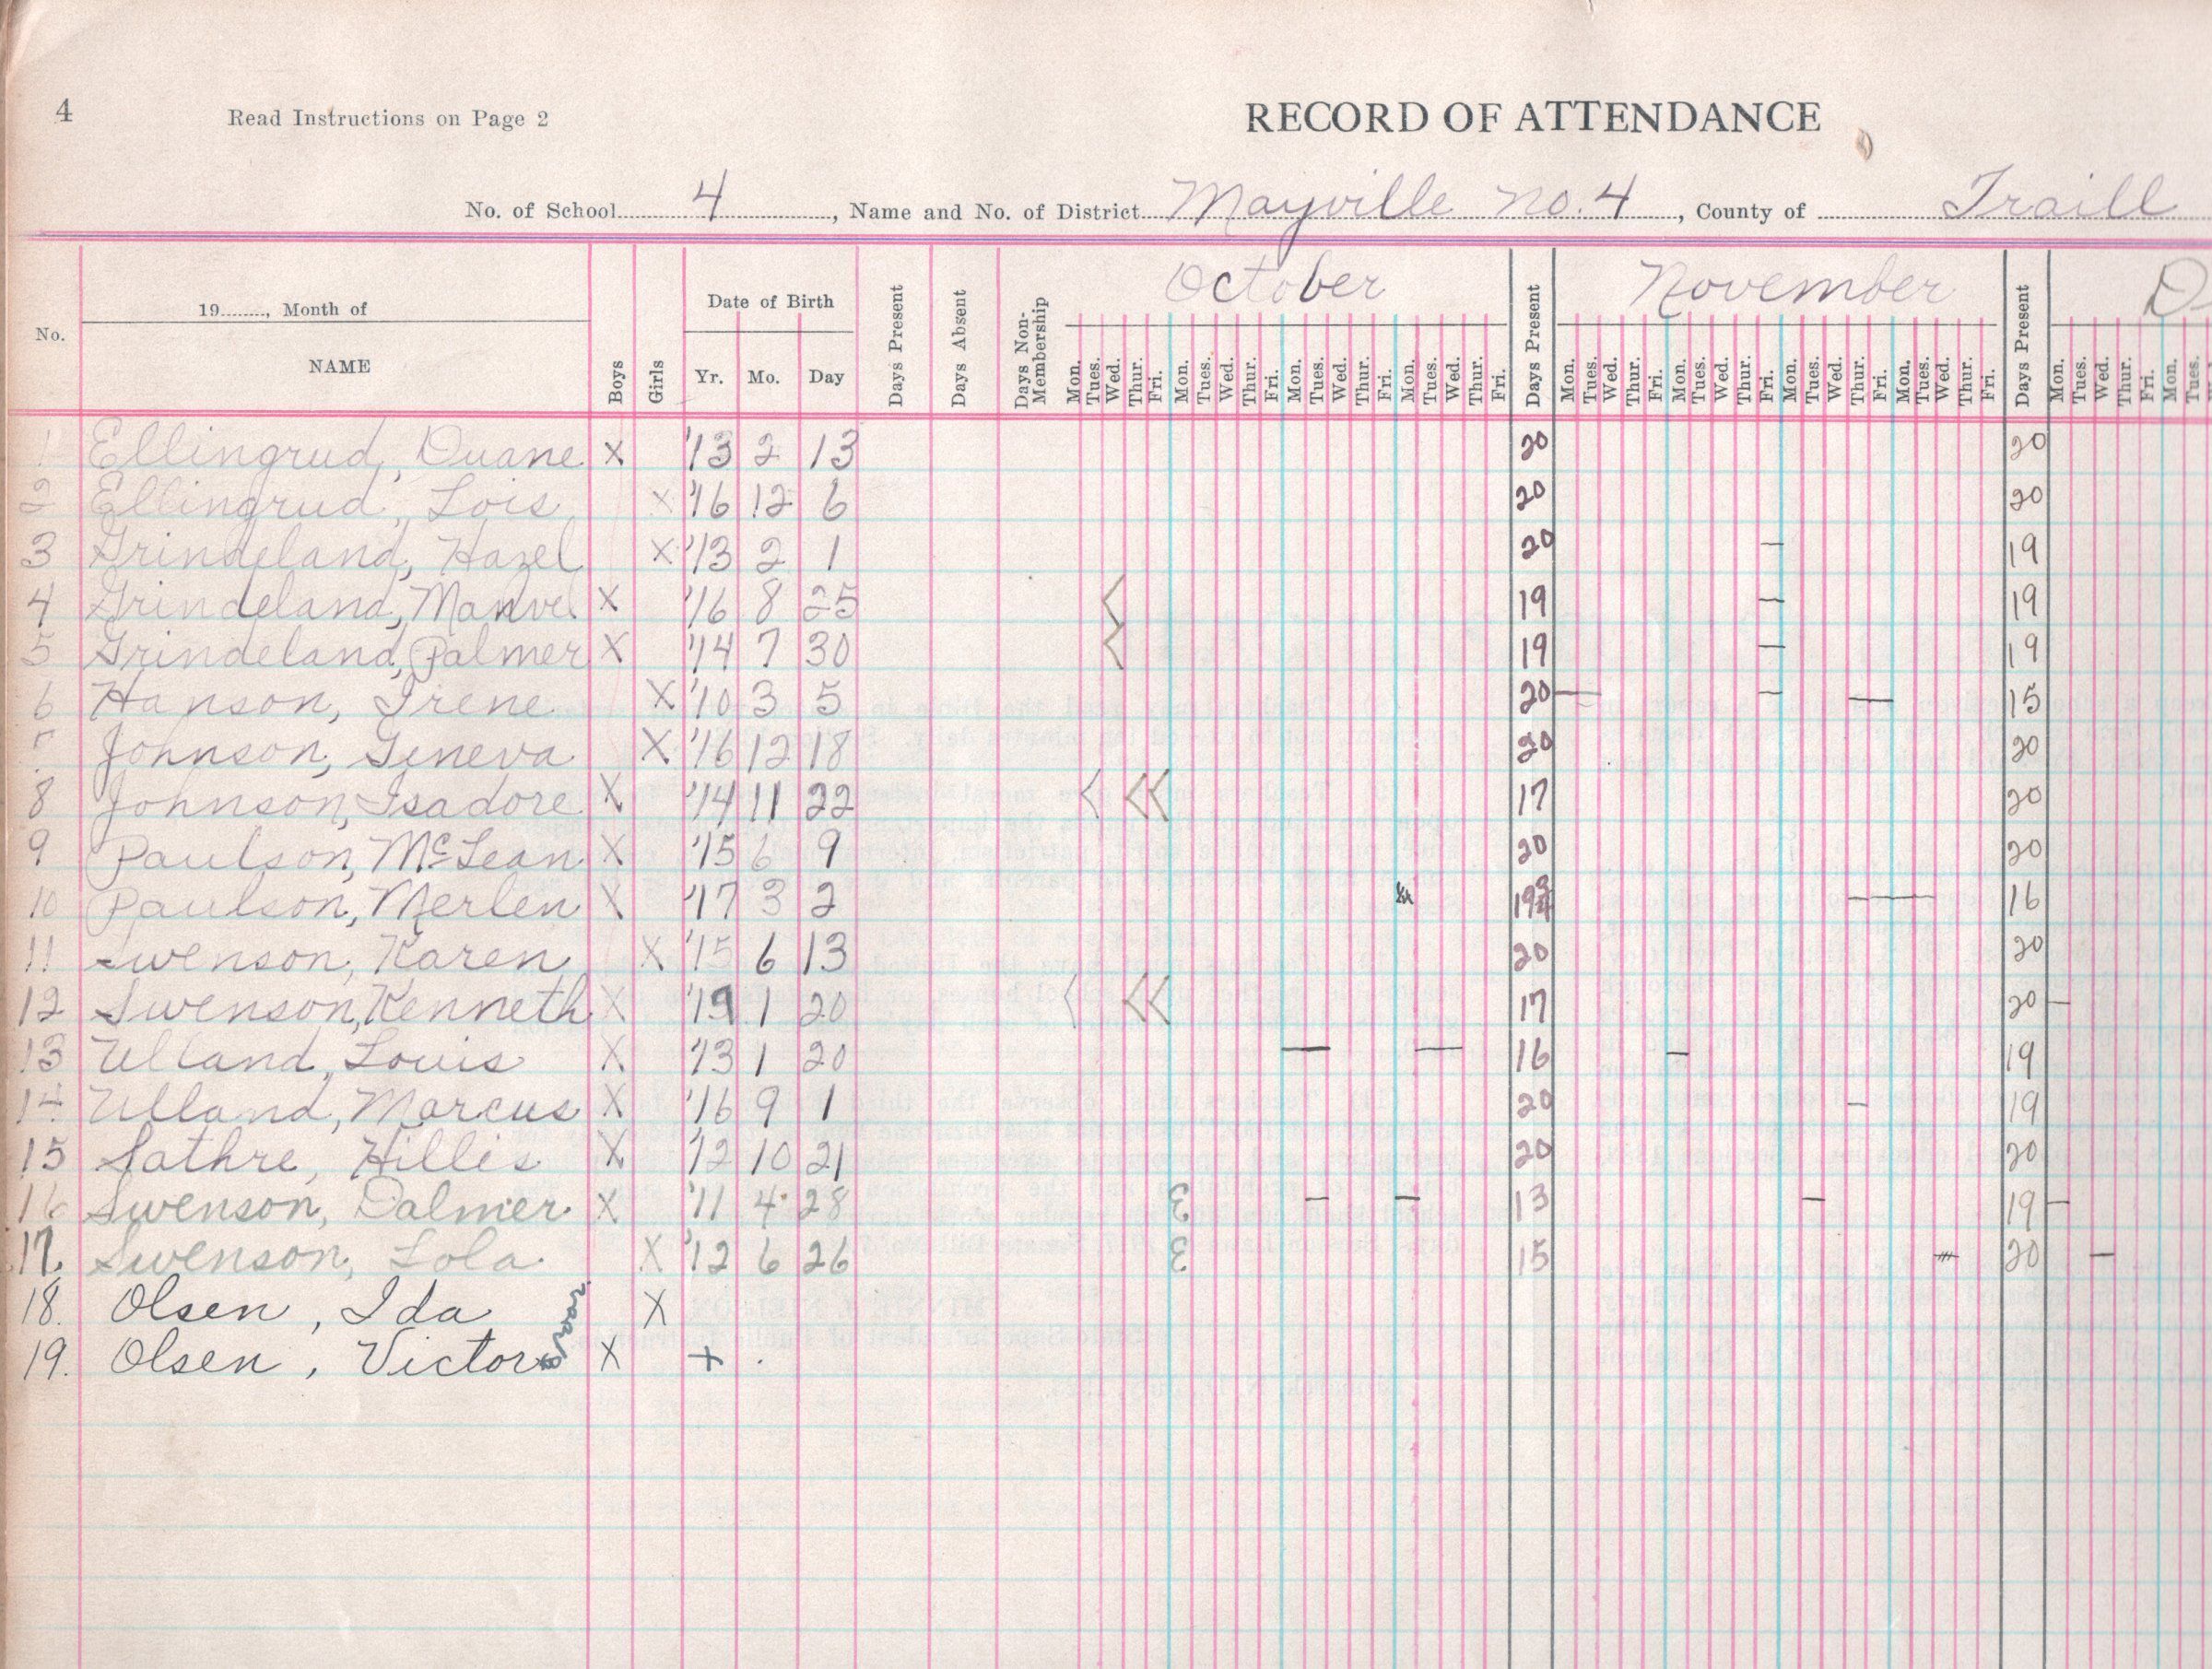 4 Read Instructions on Page 2 RECORD OF ATTENDANCE
No. of School 4, Name and No. of District Mayville No. 4, County of Traill
No. 19......, Month of NAME Boys Girls Date of Birth Yr. Mo. Day Days Present Days Absent Days Non-Membership October Days Present November Days Present D
Mon. Tues. Wed. Thur. Fri. Mon. Tues. Wed. Thur. Fri. Mon. Tues. Wed. Thur. Fri. Mon. Tues. Wed. Thur. Fri. Mon. Tues. Wed. Thur. Fri. Mon. Tues. Wed. Thur. Fri. Mon. Tues. Wed. Thur. Fri. Mon. Tues. Wed. Thur. Fri. Mon. Tues. Wed. Thur. Fri. Mon. Tues.
1 Ellingrud, Duane X '13 2 13 20 20
2 Ellingrud, Lois X '16 12 6 20 20
3 Grindeland, Hazel X '13 2 1 20 – 19
4 Grindeland, Manvel X '16 8 25 < 19 – 19
5 Grindeland, Palmer X '14 7 30 < 19 – 19
6 Hanson, Irene X '10 3 5 20 — – — 15
7 Johnson, Geneva X '16 12 18 20 20
8 Johnson, Isadore X '14 11 22 < << 17 20
9 Paulson, McLean X '15 6 9 20 20
10 Paulson, Merlen X '17 3 2 19 3/4 — 16
11 Swenson, Karen X '15 6 13 20 20
12 Swenson, Kenneth X '19 1 20 < << 17 20 –
13 Ulland, Louis X '13 1 20 — — 16 – 19
14 Ulland, Marcus X '16 9 1 20 – 19
15 Sathre, Hillis X '12 10 21 20 20
16 Swenson, Palmer X '11 4 28 E – – 13 – 19 –
17. Swenson, Lola X '12 6 26 E 15 20 –
18. Olsen, Ida X
19. Olsen, Victor X + .